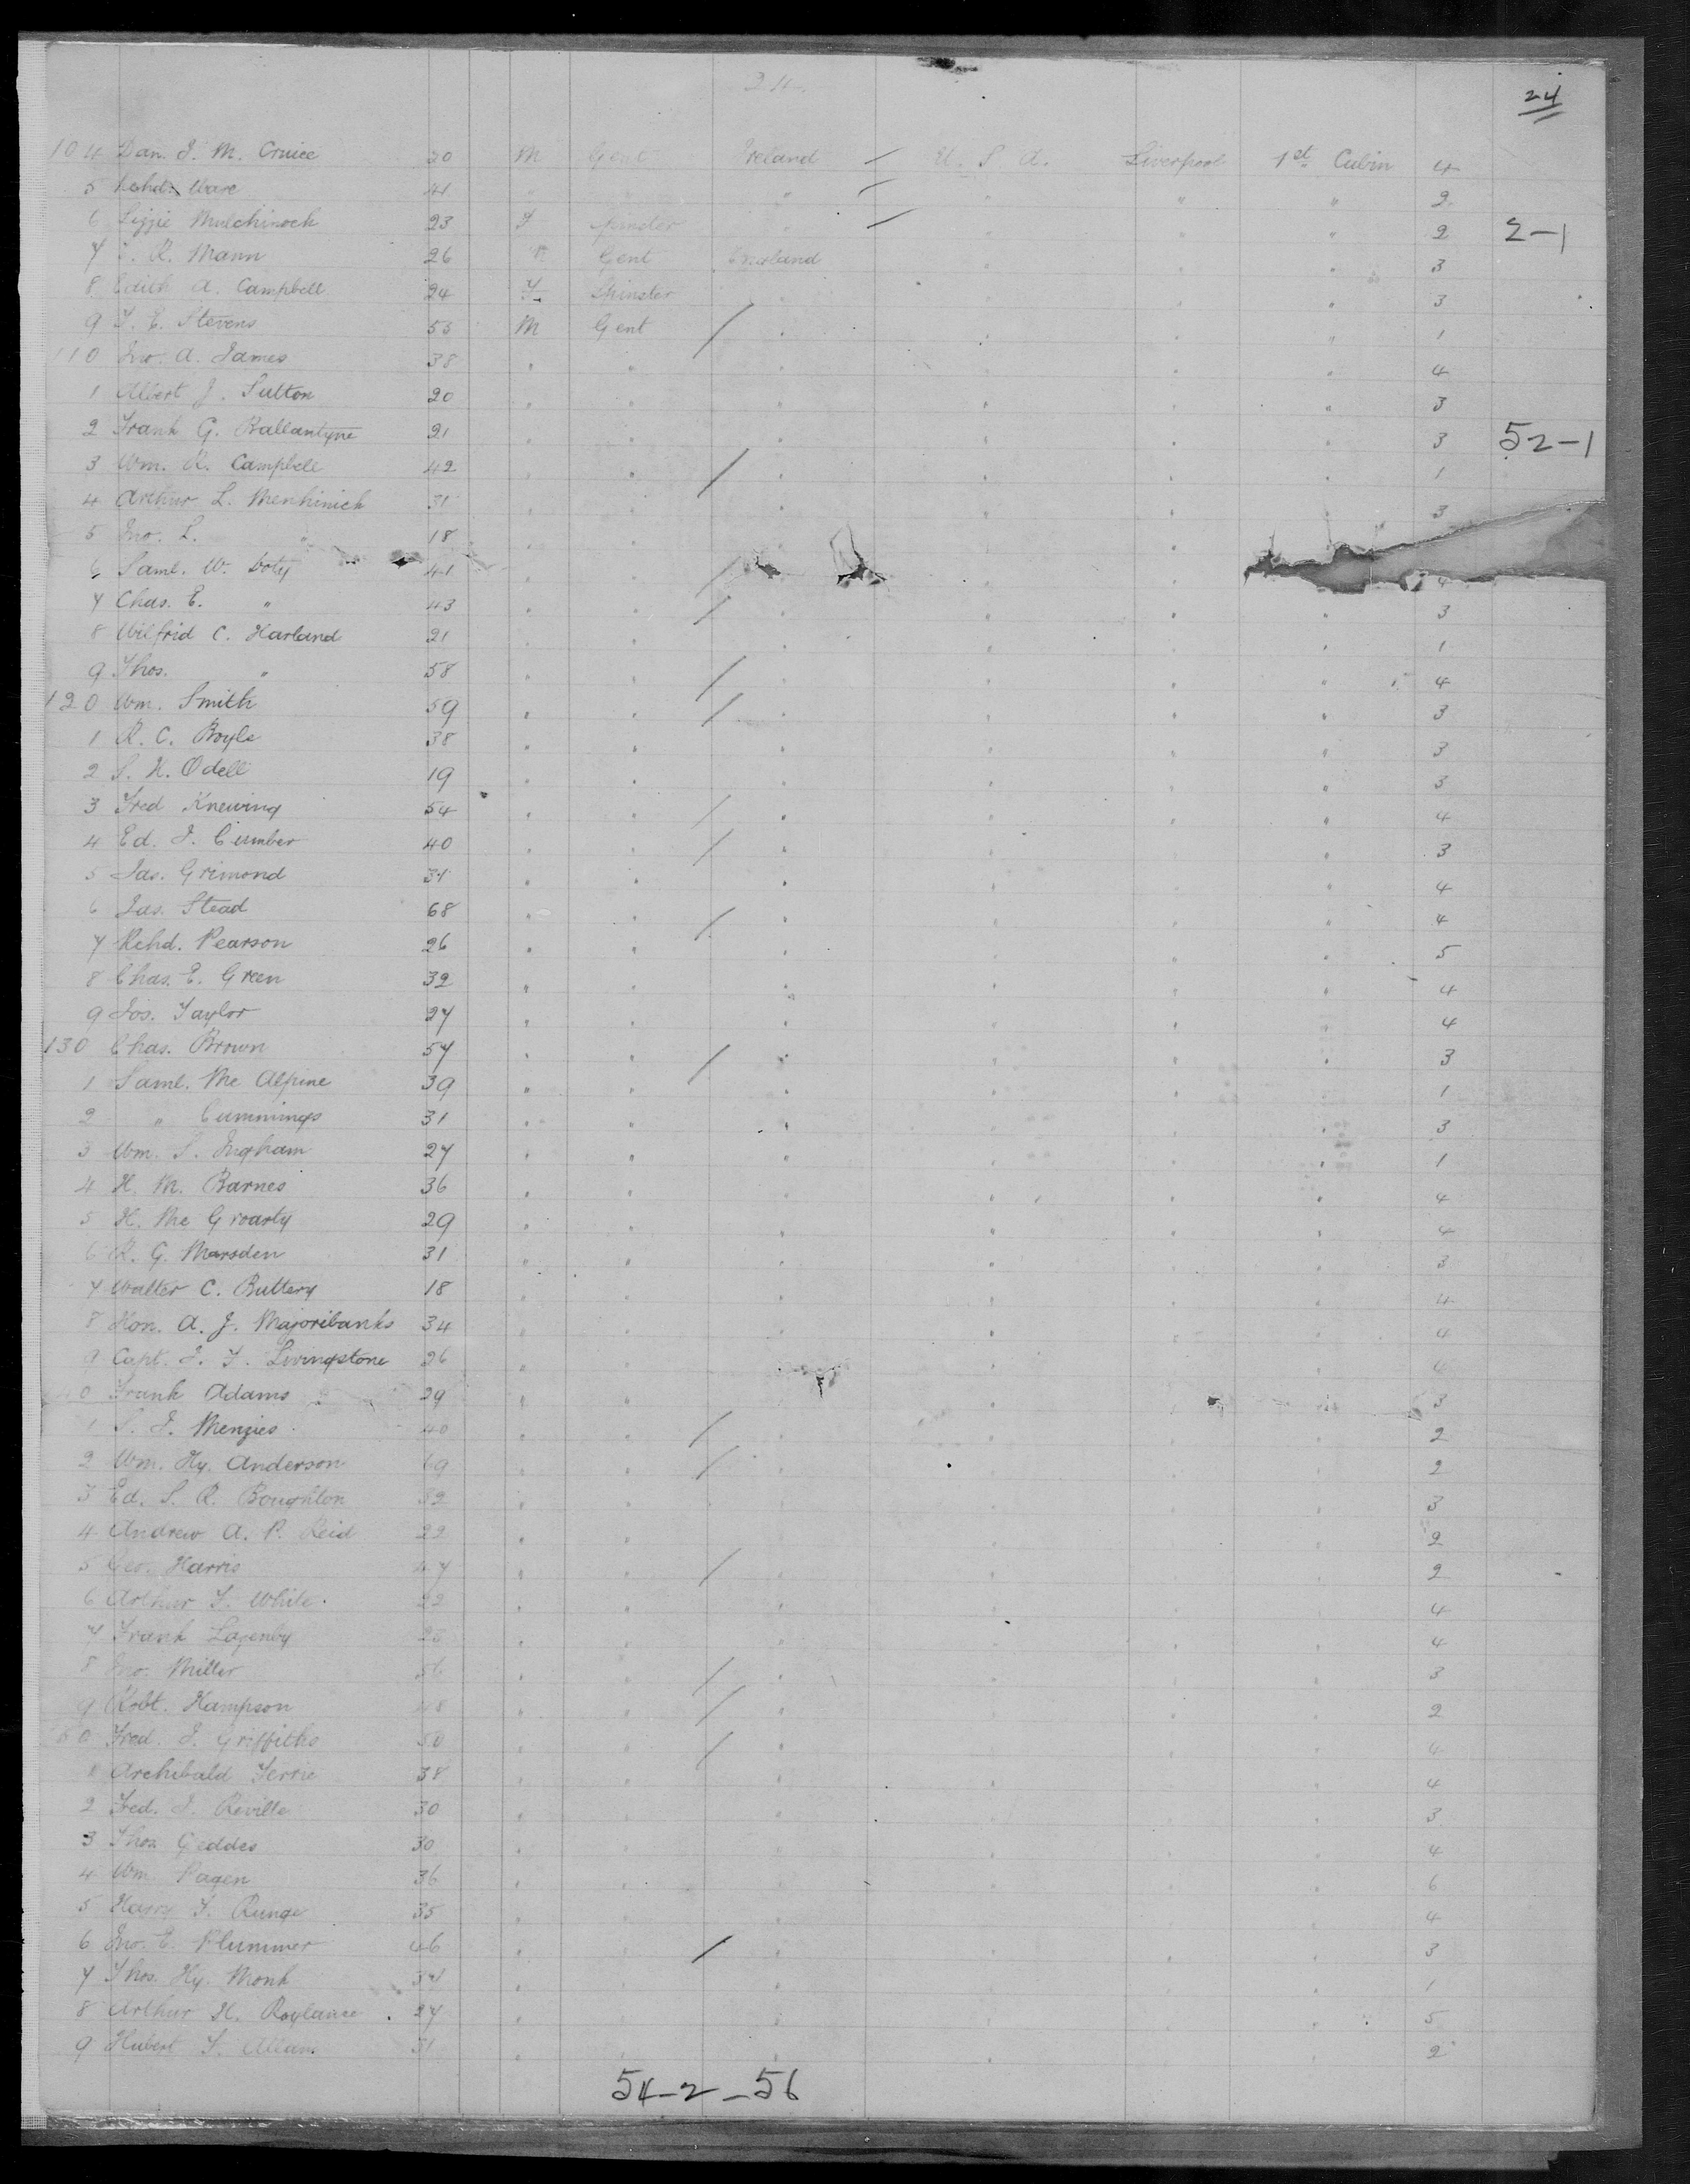 24
104 Dan. J. M. Cruice 20 M Gent Ireland / U. S. A. Liverpool 1st Cabin 4
5 Rchd. Ware 41 " " " / " " " 2
6 Lizzie Mulchinock 23 F Spinster " / " " " 2 2-1
7 R. Mann 26 M Gent England " " " 3
8 Edith A. Campbell 24 F Spinster " " " " 3
9 T. E. Stevens 55 M Gent / " " " " 1
110 Jno. A. James 38 " " " " " " 4
1 Albert J. Sutton 20 " " " " " " 3
2 Frank G. Ballantyne 21 " " " " " " 3 52-1
3 Wm. R. Campbell 42 " " / " " " " 1
4 Arthur L. Menhinick 31 " " " " " 3
5 Jno. L. " 18 " " " "
6 Saml. W. Doty 41 " " / " " 4
7 Chas. E. " 43 " " / " " " " 3
8 Wilfrid C. Harland 21 " " " " " " 1
9 Thos. " 58 " " / " " " " 4
120 Wm. Smith 59 " " / " " " " 3
1 R. C. Boyle 38 " " " " " " 3
2 S. H. Odell 19 " " " " " " 3
3 Fred Knewing 54 " " / " " " " 4
4 Ed. J. Cumber 40 " " / " " " " 3
5 Jas. Grimond 31 " " " " " " 4
6 Jas. Stead 68 " " / " " " " 4
7 Rchd. Pearson 26 " " " " " " 5
8 Chas. E. Green 32 " " " " " " 4
9 Jos. Taylor 27 " " " " " " 4
130 Chas. Brown 57 " " / " " " " 3
1 Saml. Mc Alpine 39 " " " " " " 1
2 " Cummings 31 " " " " " " 3
3 Wm. S. Ingham 27 " " " " " " 1
4 H. M. Barnes 36 " " " " " " 4
5 H. Mc Groarty 29 " " " " " " 4
6 R. G. Marsden 31 " " " " " " 3
7 Walter C. Buttery 18 " " " " " " 4
8 Hon. A. J. Majoribanks 34 " " " " " " 4
9 Capt. J. F. Livingstone 26 " " " " "
0 Frank Adams 29 " " " " 3
1 S. J. Menzies 40 " " / " " " " 2
2 Wm. Hy. Anderson 69 " " / " " " " 2
3 Ed. S. R. Boughton 32 " " " " " " 3
4 Andrew A. P. Reid 22 " " " " " " 2
5 Geo. Harris 47 " " / " " " " 2
6 Arthur F. White 22 " " " " " " 4
7 Frank Lazenby " " " " " " 4
8 Jno. Miller 56 " " / " " " " 3
9 Robt. Hampson 48 " " / " " " " 2
0 Fred. J. Griffiths 50 " " / " " " " 4
1 Archibald Ferrie 38 " " " " " " 4
2 Fred. J. Reville 30 " " " " " " 3
3 Thos. Geddes 30 " " " " " " 4
4 Wm. Pagen 36 " " " " " " 6
5 Harry F. Runge 35 " " " " " " 4
6 Jno. E. Plummer 46 " " / " " " " 3
7 Thos. Hy. Monk " " " " " " 1
8 Arthur H. Roylance 27 " " " " " " 5
9 Hubert F. Allam 31 " " " " " " 2
54-2-56